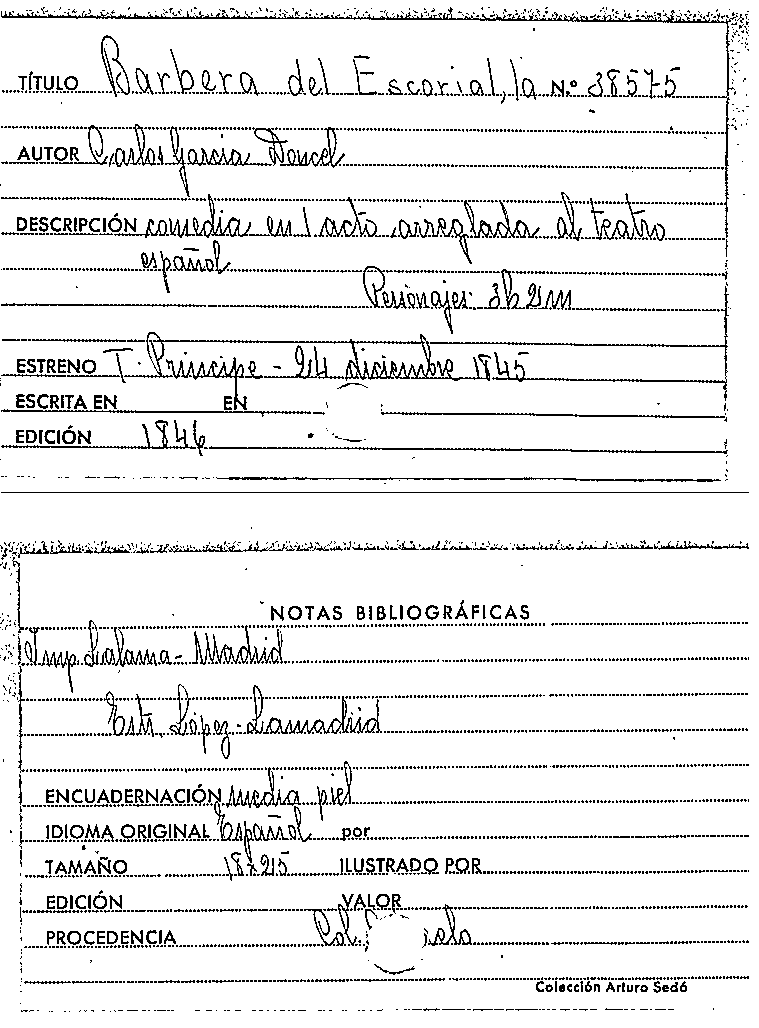 TÍTULO Barbera del Escorial, la N.º 38575
AUTOR Carlos García Doncel
DESCRIPCIÓN comedia en 1 acto arreglada al teatro
español
Personajes: 3h 2m
ESTRENO T. Principe - 24 diciembre 1845
ESCRITA EN EN
EDICIÓN 1846
NOTAS BIBLIOGRÁFICAS
Imp. Lalama - Madrid
Estr. López - Lamadrid
ENCUADERNACIÓN media piel
IDIOMA ORIGINAL Español por
TAMAÑO 18x215 ILUSTRADO POR
EDICIÓN VALOR
PROCEDENCIA Col.
Colección Arturo Sedó